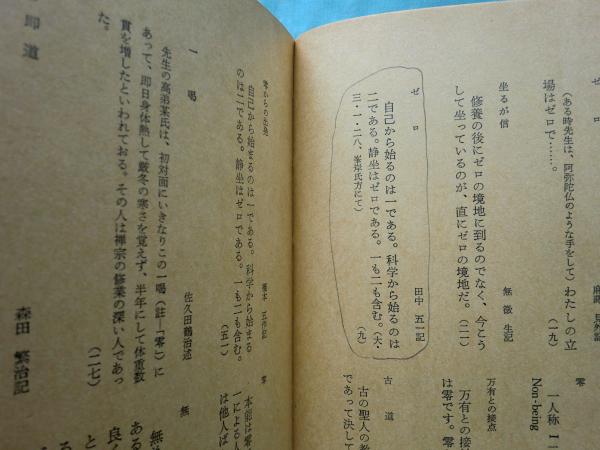 (ある時先生は、阿弥陀仏のような手をして)わたしの立
場はゼロで……。
(一九)
坐るが信
無微生記
修養の後にゼロの境地に到るのでなく、今こう
して坐っているのが、直にゼロの境地だ。(二一)
ゼロ
田中五一記
自己から始るのは一である。科学から始るのは
二である。静坐はゼロである。一も二も含む。(大・
三・一・二八、峯岸氏方にて)
(九)
零
一人称 I
Non-being
万有との接点
万有との接
は零です。零
古道
古の聖人の教
であって決して
零からの出発
橋本五作記
自己から始まるのは一である。科学から始まる
のは二である。静坐はゼロである。一も二も含む。
(五一)
一喝
佐久田鶴治述
先生の高弟某氏は、初対面にいきなりこの一喝(註―「零」)に
あって、即日身体熱して厳冬の寒さを覚えず、半年にして体重数
貫を増したといわれておる。その人は禅宗の修業の深い人であっ
た。
(二七)
即道
森田繁治記
零
本御は零
一による人
は他人ば
無
無
ある
と
良く
る